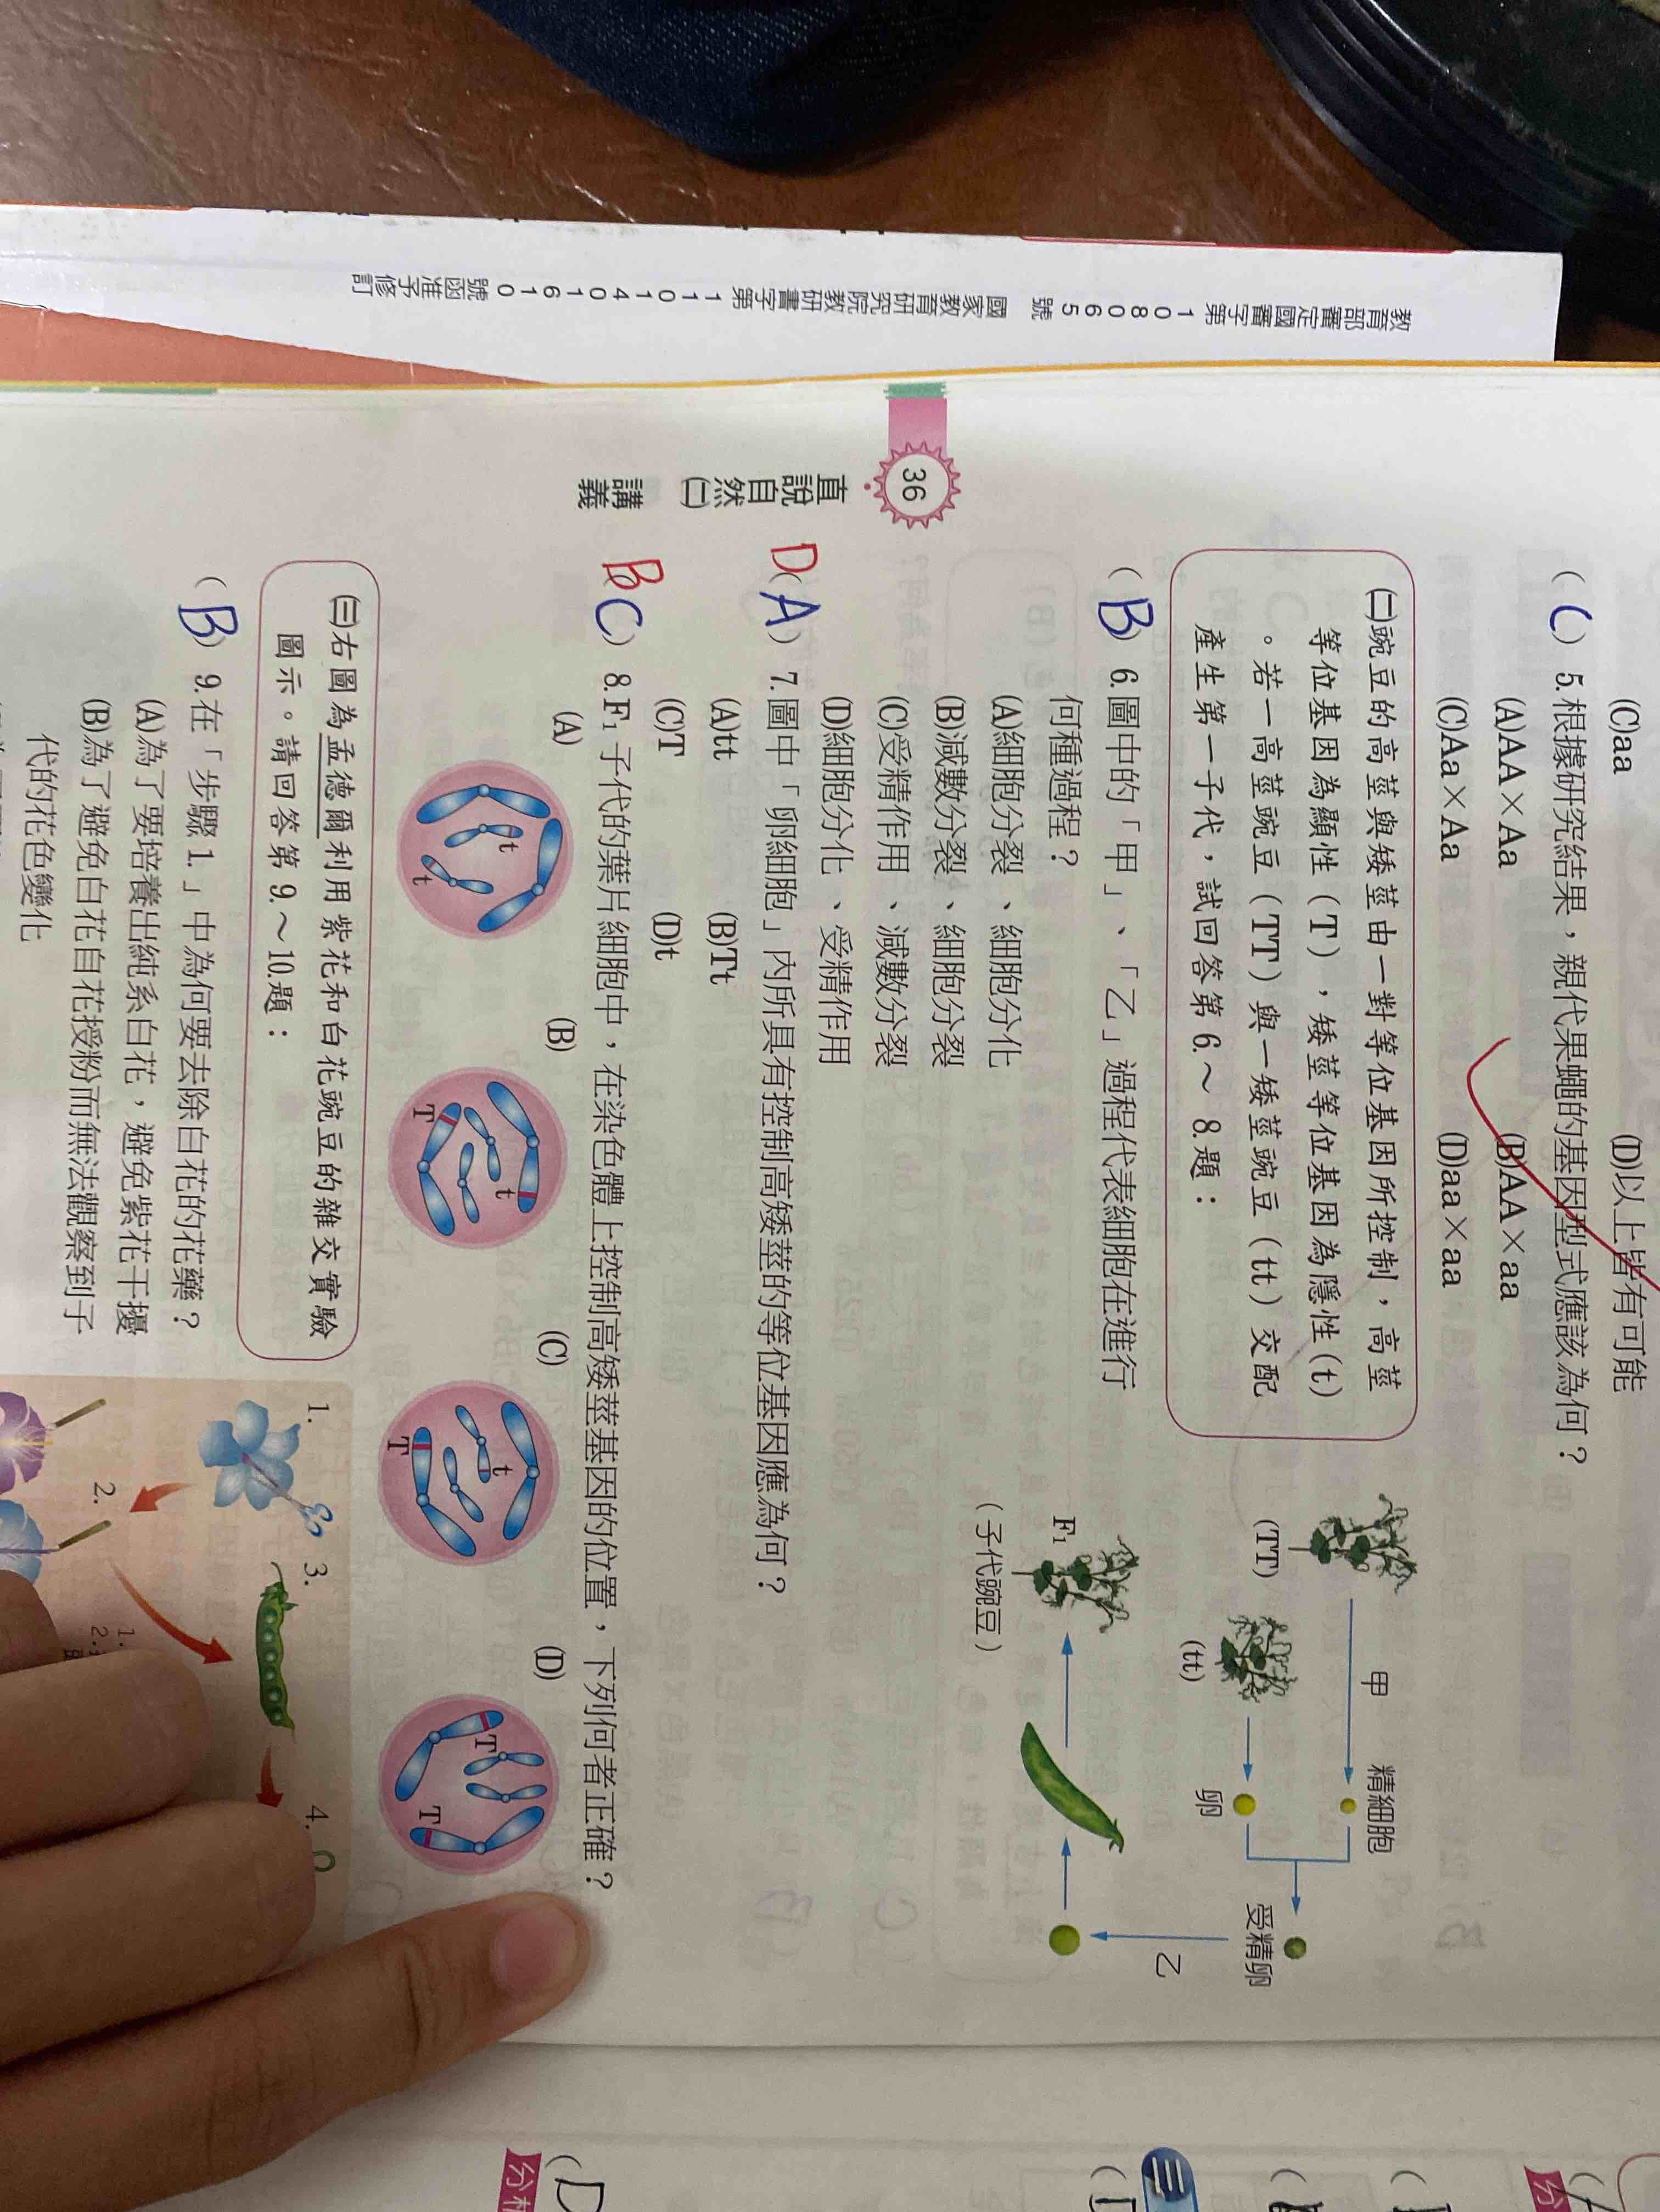 教育部審定國審字第108065號 國家教育研究院教研書字第11101401610號函准予修訂
36
直說自然㈡ 講義
(C)aa
(D)以上皆有可能
(C) 5.根據研究結果，親代果蠅的基因型式應該為何？
(A)AA×Aa (B)AA×aa
(C)Aa×Aa (D)aa×aa
㈡豌豆的高莖與矮莖由一對等位基因所控制，高莖
等位基因為顯性(T)，矮莖等位基因為隱性(t)
。若一高莖豌豆(TT)與一矮莖豌豆(tt)交配
產生第一子代，試回答第6.～8.題：
(TT)
甲
精細胞
(tt)
卵
受精卵
乙
F₁
(子代豌豆)
(B) 6.圖中的「甲」、「乙」過程代表細胞在進行
何種過程？
(A)細胞分裂、細胞分化
(B)減數分裂、細胞分裂
(C)受精作用、減數分裂
(D)細胞分化、受精作用
D(A) 7.圖中「卵細胞」內所具有控制高矮莖的等位基因應為何？
(A)tt (B)Tt
(C)T (D)t
B(C) 8.F₁子代的葉片細胞中，在染色體上控制高矮莖基因的位置，下列何者正確？
(A) (B) (C) (D)
t t
T t
T t
T T
㈢右圖為孟德爾利用紫花和白花豌豆的雜交實驗
圖示。請回答第9.～10.題：
(B) 9.在「步驟1.」中為何要去除白花的花藥？
(A)為了要培養出純系白花，避免紫花干擾
(B)為了避免白花自花授粉而無法觀察到子
代的花色變化
1.
2.
3.
4.
1.
2.
(D
分析